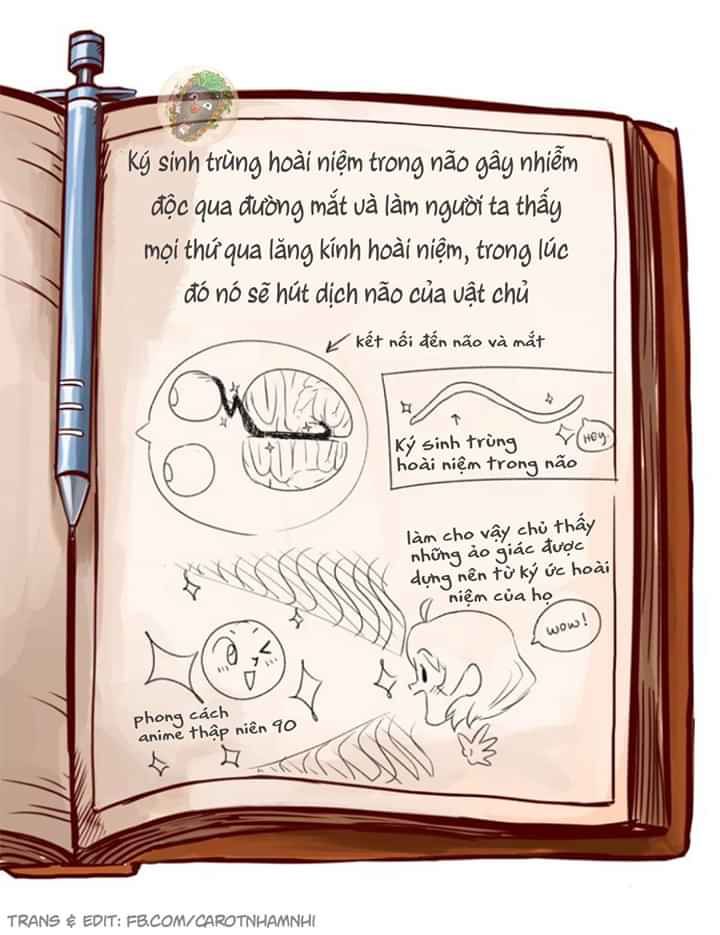 Ký sinh trùng hoài niệm trong não gây nhiễm
độc qua đường mắt và làm người ta thấy
mọi thứ qua lăng kính hoài niệm, trong lúc
đó nó sẽ hút dịch não của vật chủ
kết nối đến não và mắt
Hey.
Ký sinh trùng
hoài niệm trong não
làm cho vậy chủ thấy
những ảo giác được
dựng nên từ ký ức hoài
niệm của họ
wow!
phong cách
anime thập niên 90
TRANS & EDIT: FB.COM/CAROTNHAMNHI